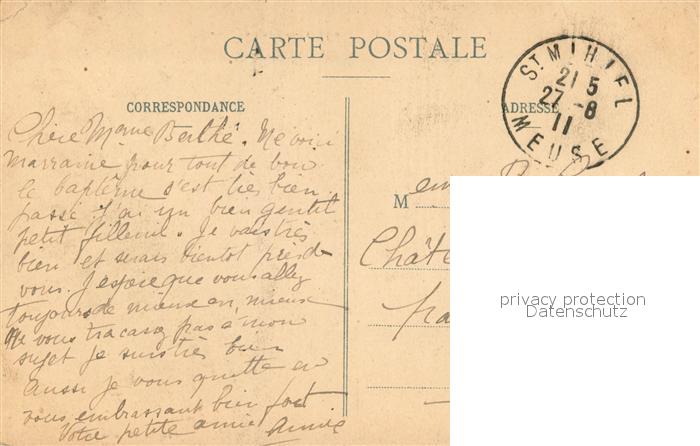 CARTE POSTALE
CORRESPONDANCE
ADRESSE
ST MIHIEL
21 5
27 -8
11
MEUSE
Chère Mme Berthe. Me voici
marraine pour tout de bon
le baptême s'est très bien
passé j'ai un bien gentil
petit filleul. Je vais très
bien et serais bientôt près de
vous. J'espère que vous allez
toujours de mieux en mieux
Ne vous tracassez pas à mon
sujet je suis très bien
Aussi je vous quitte en
vous embrassant bien fort
Votre petite amie Annie
M
Châte
privacy protection
Datenschutz